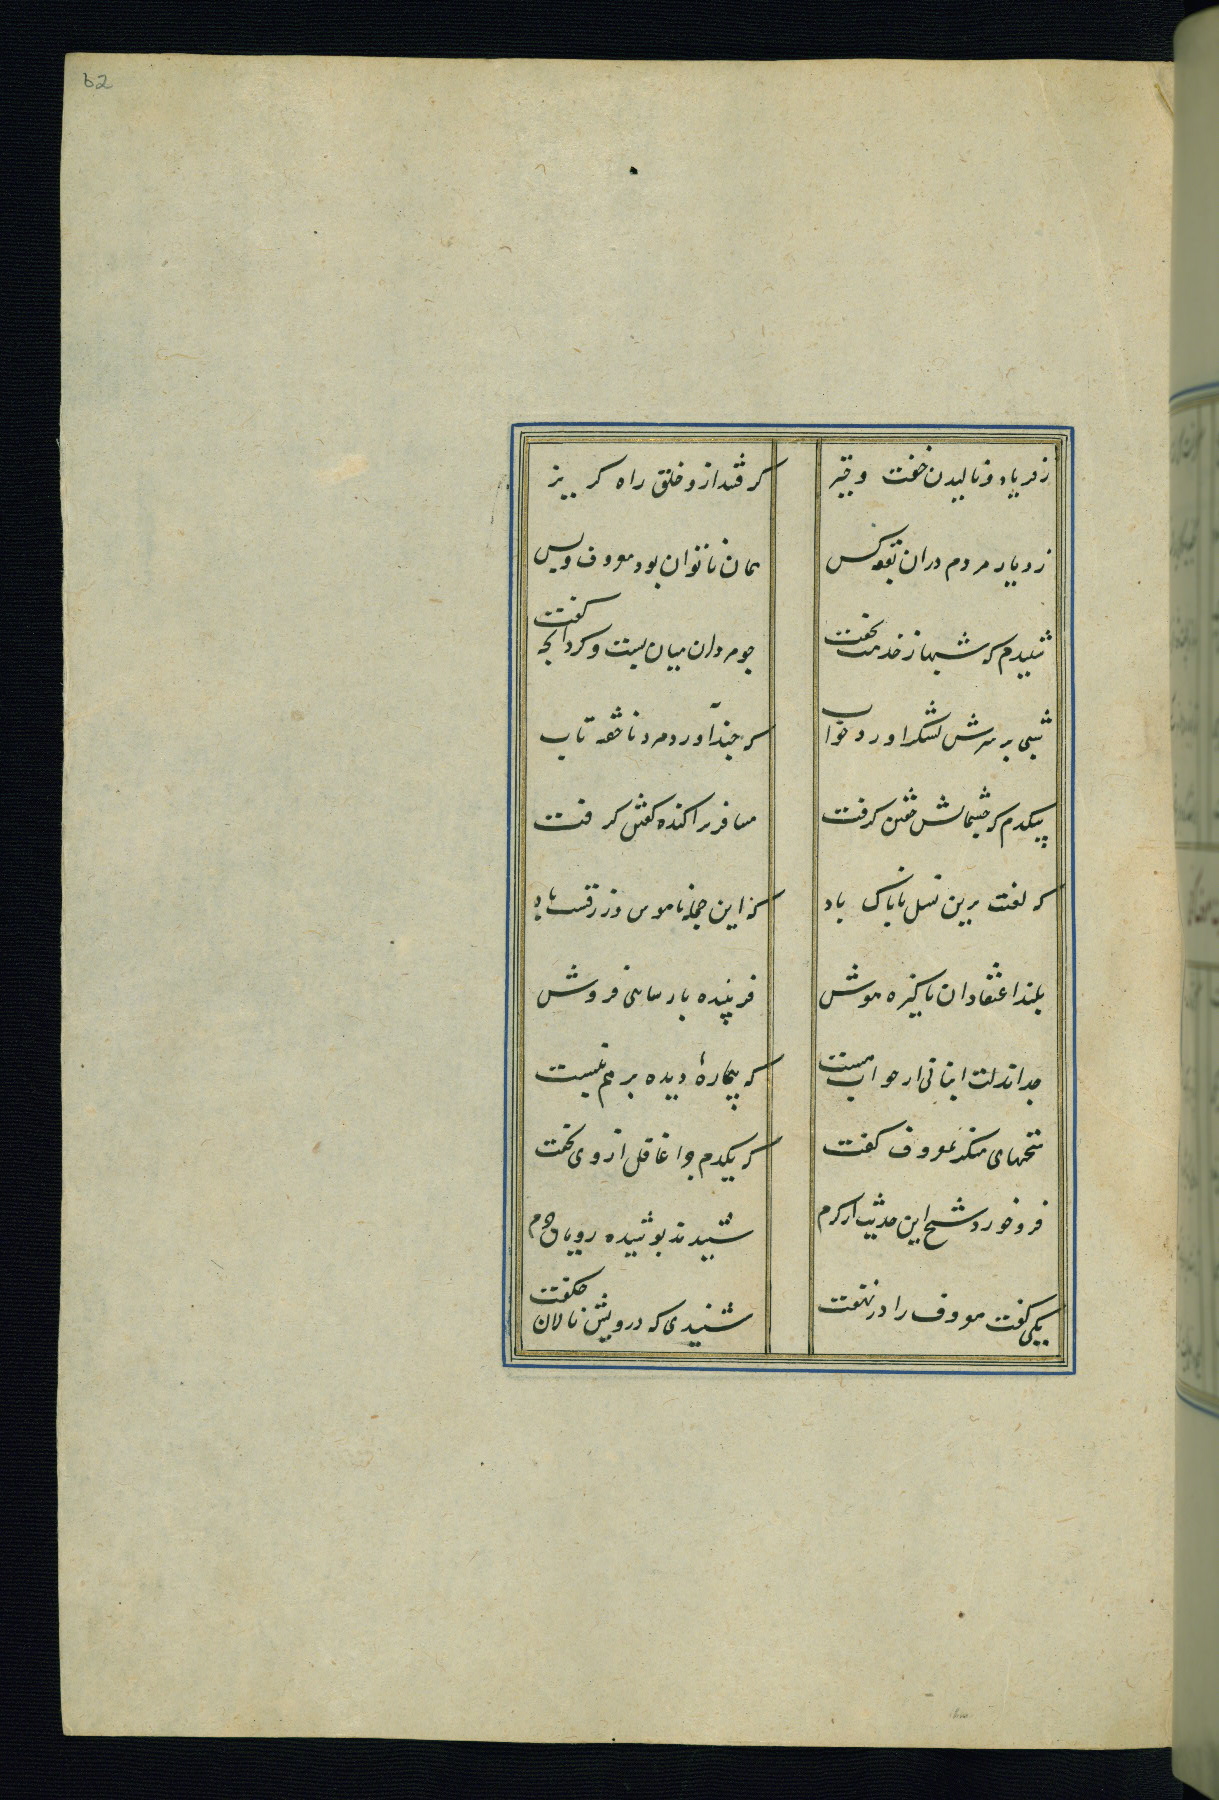 62
ز فریاد و نالیدن خفت و خیز
گرفتند ازو خلق راه گریز
ز دیار مردم دران بقعه کس
همان ناتوان بود معروف و بس
شنیدم که شبها ز خدمت نخفت
چو مردان میان بست و کرد آنچه گفت
شبی بر سرش لشکر آورد خواب
که چند آورد مرد ناخفته تاب
بیکدم که چشمانش خفتن گرفت
مسافر پراکنده گفتن گرفت
که لعنت برین نسل ناپاک باد
که این جمله ناموس و زرقست باد
بلند اعتقادان پاکیزه پوش
فریبنده پارسایی فروش
چه داند لت انبانی از خواب مست
که بیچارهٔ دیده بر هم نبست
سخنهای منکر بمعروف گفت
که یکدم چرا غافل از وی بخفت
فرو خورد شیخ این حدیث از کرم
شنیدند پوشیده رویان حرم
یکی گفت معروف را در نهفت
شنیدی که درویش نالان چگفت